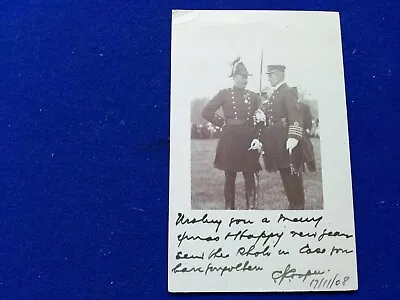 Wishing you a Merry
Xmas & Happy new year
send the Photo in Case you
have forgotten
17/11/08